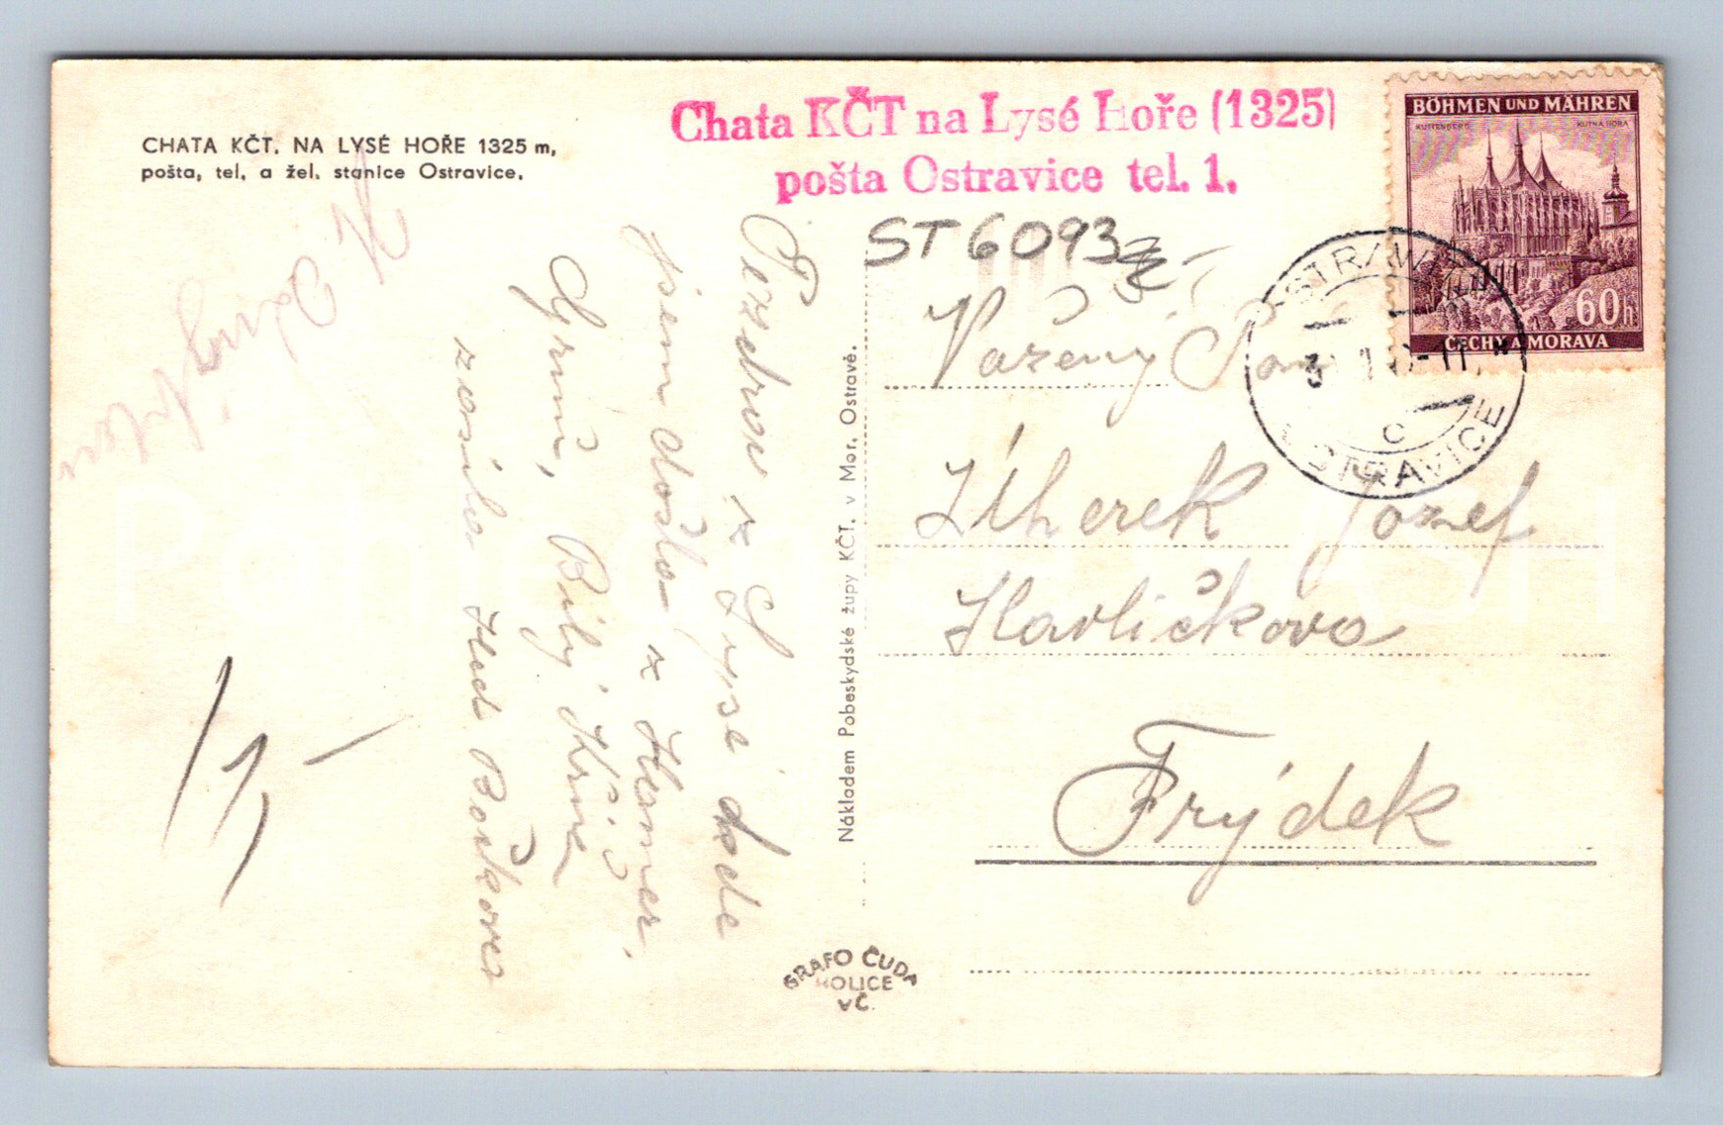 CHATA KČT. NA LYSÉ HOŘE 1325 m,
pošta, tel. a žel. stanice Ostravice.
Chata KČT na Lysé Hoře (1325)
pošta Ostravice tel. 1.
BÖHMEN UND MÄHREN
KUTTENBERG KUTNÁ HORA
60h
ČECHY A MORAVA
OSTRAWITZ
OSTRAVICE
c
ST6093
Vážený Pan
Josef
Havlíčkova
Frýdek
Pozdrav z Lysé
jsem došla z Hamer,
Grůň, Bílý Kříž
zasílá Bočkova
Nákladem Pobeskydské župy KČT. v Mor. Ostravě.
GRAFO ČUDA
HOLICE
VČ.